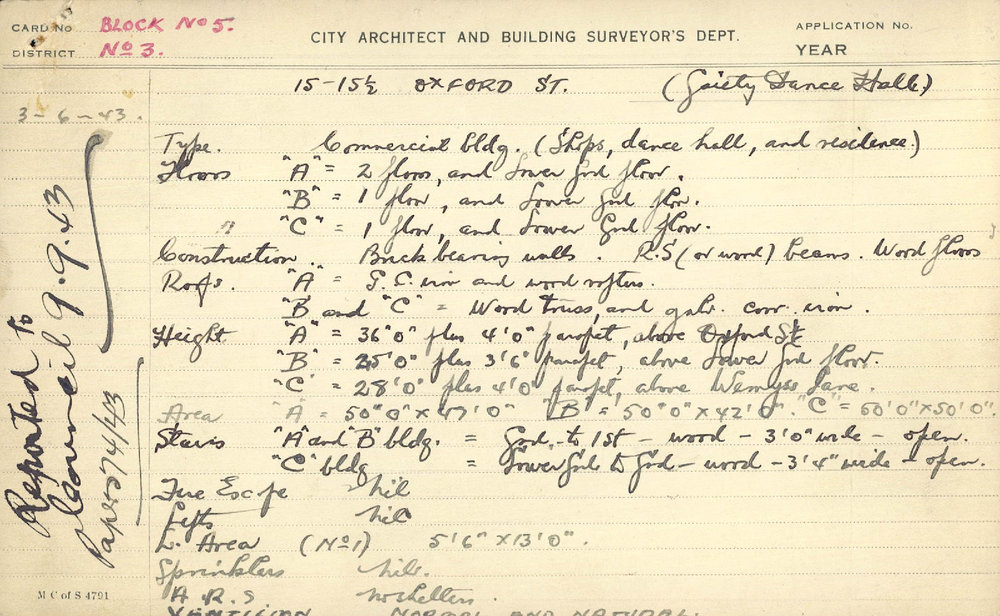 CARD No BLOCK No 5.
DISTRICT No 3.
CITY ARCHITECT AND BUILDING SURVEYOR'S DEPT.
APPLICATION No.
YEAR
15-15½ OXFORD ST. (Gaiety Dance Hall)
3-6-43.
Type. Commercial bldg. (Shops, dance hall, and residence.)
Floors "A" = 2 floors, and Lower Grd floor.
"B" = 1 floor, and Lower Grd floor.
" "C" = 1 floor, and Lower Grd floor.
Construction. Brick bearing walls. R.S (or wood) beams. Wood floors
Roofs. "A" = G.C. iron and wood rafters.
"B and "C" = Wood truss, and galv. corr. iron.
Height "A" = 36'0" plus 4'0" parapet, above Oxford St
"B" = 25'0" plus 3'6" parapet, above Lower Grd floor.
"C" = 28'0" plus 4'0" parapet, above Wemyss Lane.
Area "A" = 50'0" x 47'0" "B" = 50'0" x 42'0". "C" = 50'0" x 50'0"
Stairs "A" and "B" bldg. = Grd. to 1st - wood - 3'0" wide - open.
"C" bldg = Lower Grd to Grd - wood - 3'4" wide - open.
Fire Escape nil
Lifts nil
L. Area (No 1) 5'6" x 13'0".
Sprinklers nil.
A.R.S no shelters.
VENTILATION NORMAL AND NATURAL.
Reported to
Council 9.9.43
Papers 74/43
M C of S 4791